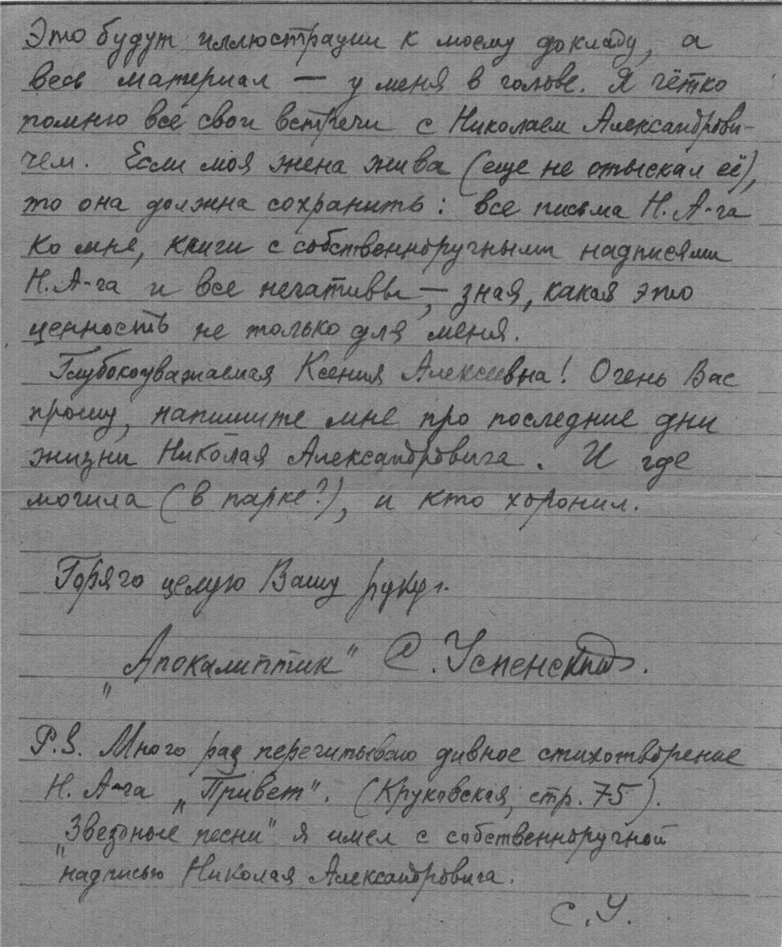 Это будут иллюстрации к моему докладу, а
весь материал — у меня в голове. Я чётко
помню все свои встречи с Николаем Александрови-
чем. Если моя жена жива (еще не отыскал её),
то она должна сохранить: все письма Н. А-ча
ко мне, книги с собственноручными надписями
Н. А-ча и все негативы, — зная, какая это
ценность не только для меня.
Глубокоуважаемая Ксения Алексеевна! Очень Вас
прошу, напишите мне про последние дни
жизни Николая Александровича. И где
могила (в парке?), и кто хоронил.
Горячо целую Вашу руку.
„Апокалиптик" С. Успенский.
P.S. Много раз перечитываю дивное стихотворение
Н. А-ча „Привет". (Круковская, стр. 75).
„Звездные песни" я имел с собственноручной
надписью Николая Александровича.
С. У.